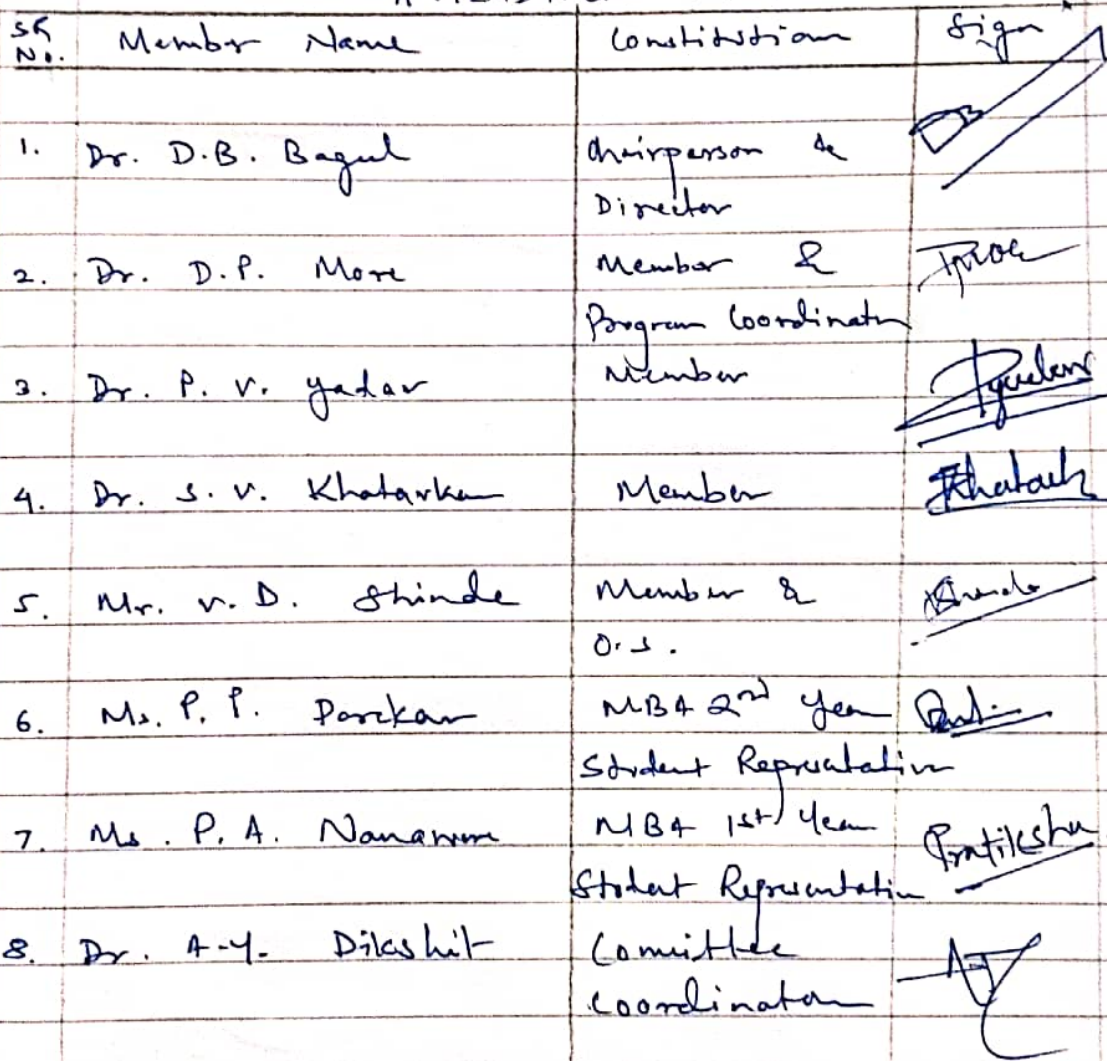 SR No. Member Name Constitution Sign
1. Dr. D.B. Bagul Chairperson &
Director
2. Dr. D.P. More Member &
Program Coordinator
3. Dr. P. V. Yadav Member
4. Dr. S. V. Khatavkar Member Khatavk
5. Mr. V. D. Shinde Member & Shinde
O.S.
6. Ms. P. P. Darekar MBA 2nd Year
Student Representative
7. Ms. P. A. Nanaware MBA 1st Year Pratiksha
Student Representative
8. Dr. A.Y. Dikshit Committee
Coordinator